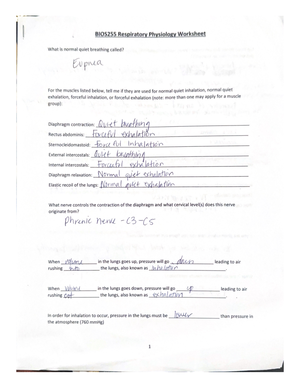 BIO5255 Respiratory Physiology Worksheet
What is normal quiet breathing called?
Eupnea
For the muscles listed below, tell me if they are used for normal quiet inhalation, normal quiet
exhalation, forceful inhalation, or forceful exhalation (note: more than one may apply for a muscle
group).
Diaphragm contraction: Quiet breathing
Rectus abdominis: Forceful exhalation
Sternocleidomastoid: Forceful Inhalation
External intercostals: Quiet breathing
Internal intercostals: Forceful exhalation
Diaphragm relaxation: Normal quiet exhalation
Elastic recoil of the lungs: Normal quiet exhalation
What nerve controls the contraction of the diaphragm and what cervical level(s) does this nerve
originate from?
Phrenic nerve - C3-C5
When volume in the lungs goes up, pressure will go down leading to air
rushing into the lungs, also known as inhalation
When in the lungs goes down, pressure will go up leading to air
rushing out the lungs, also known as exhalation
In order for inhalation to occur, pressure in the lungs must be lower than pressure in
the atmosphere (760 mmHg)
1